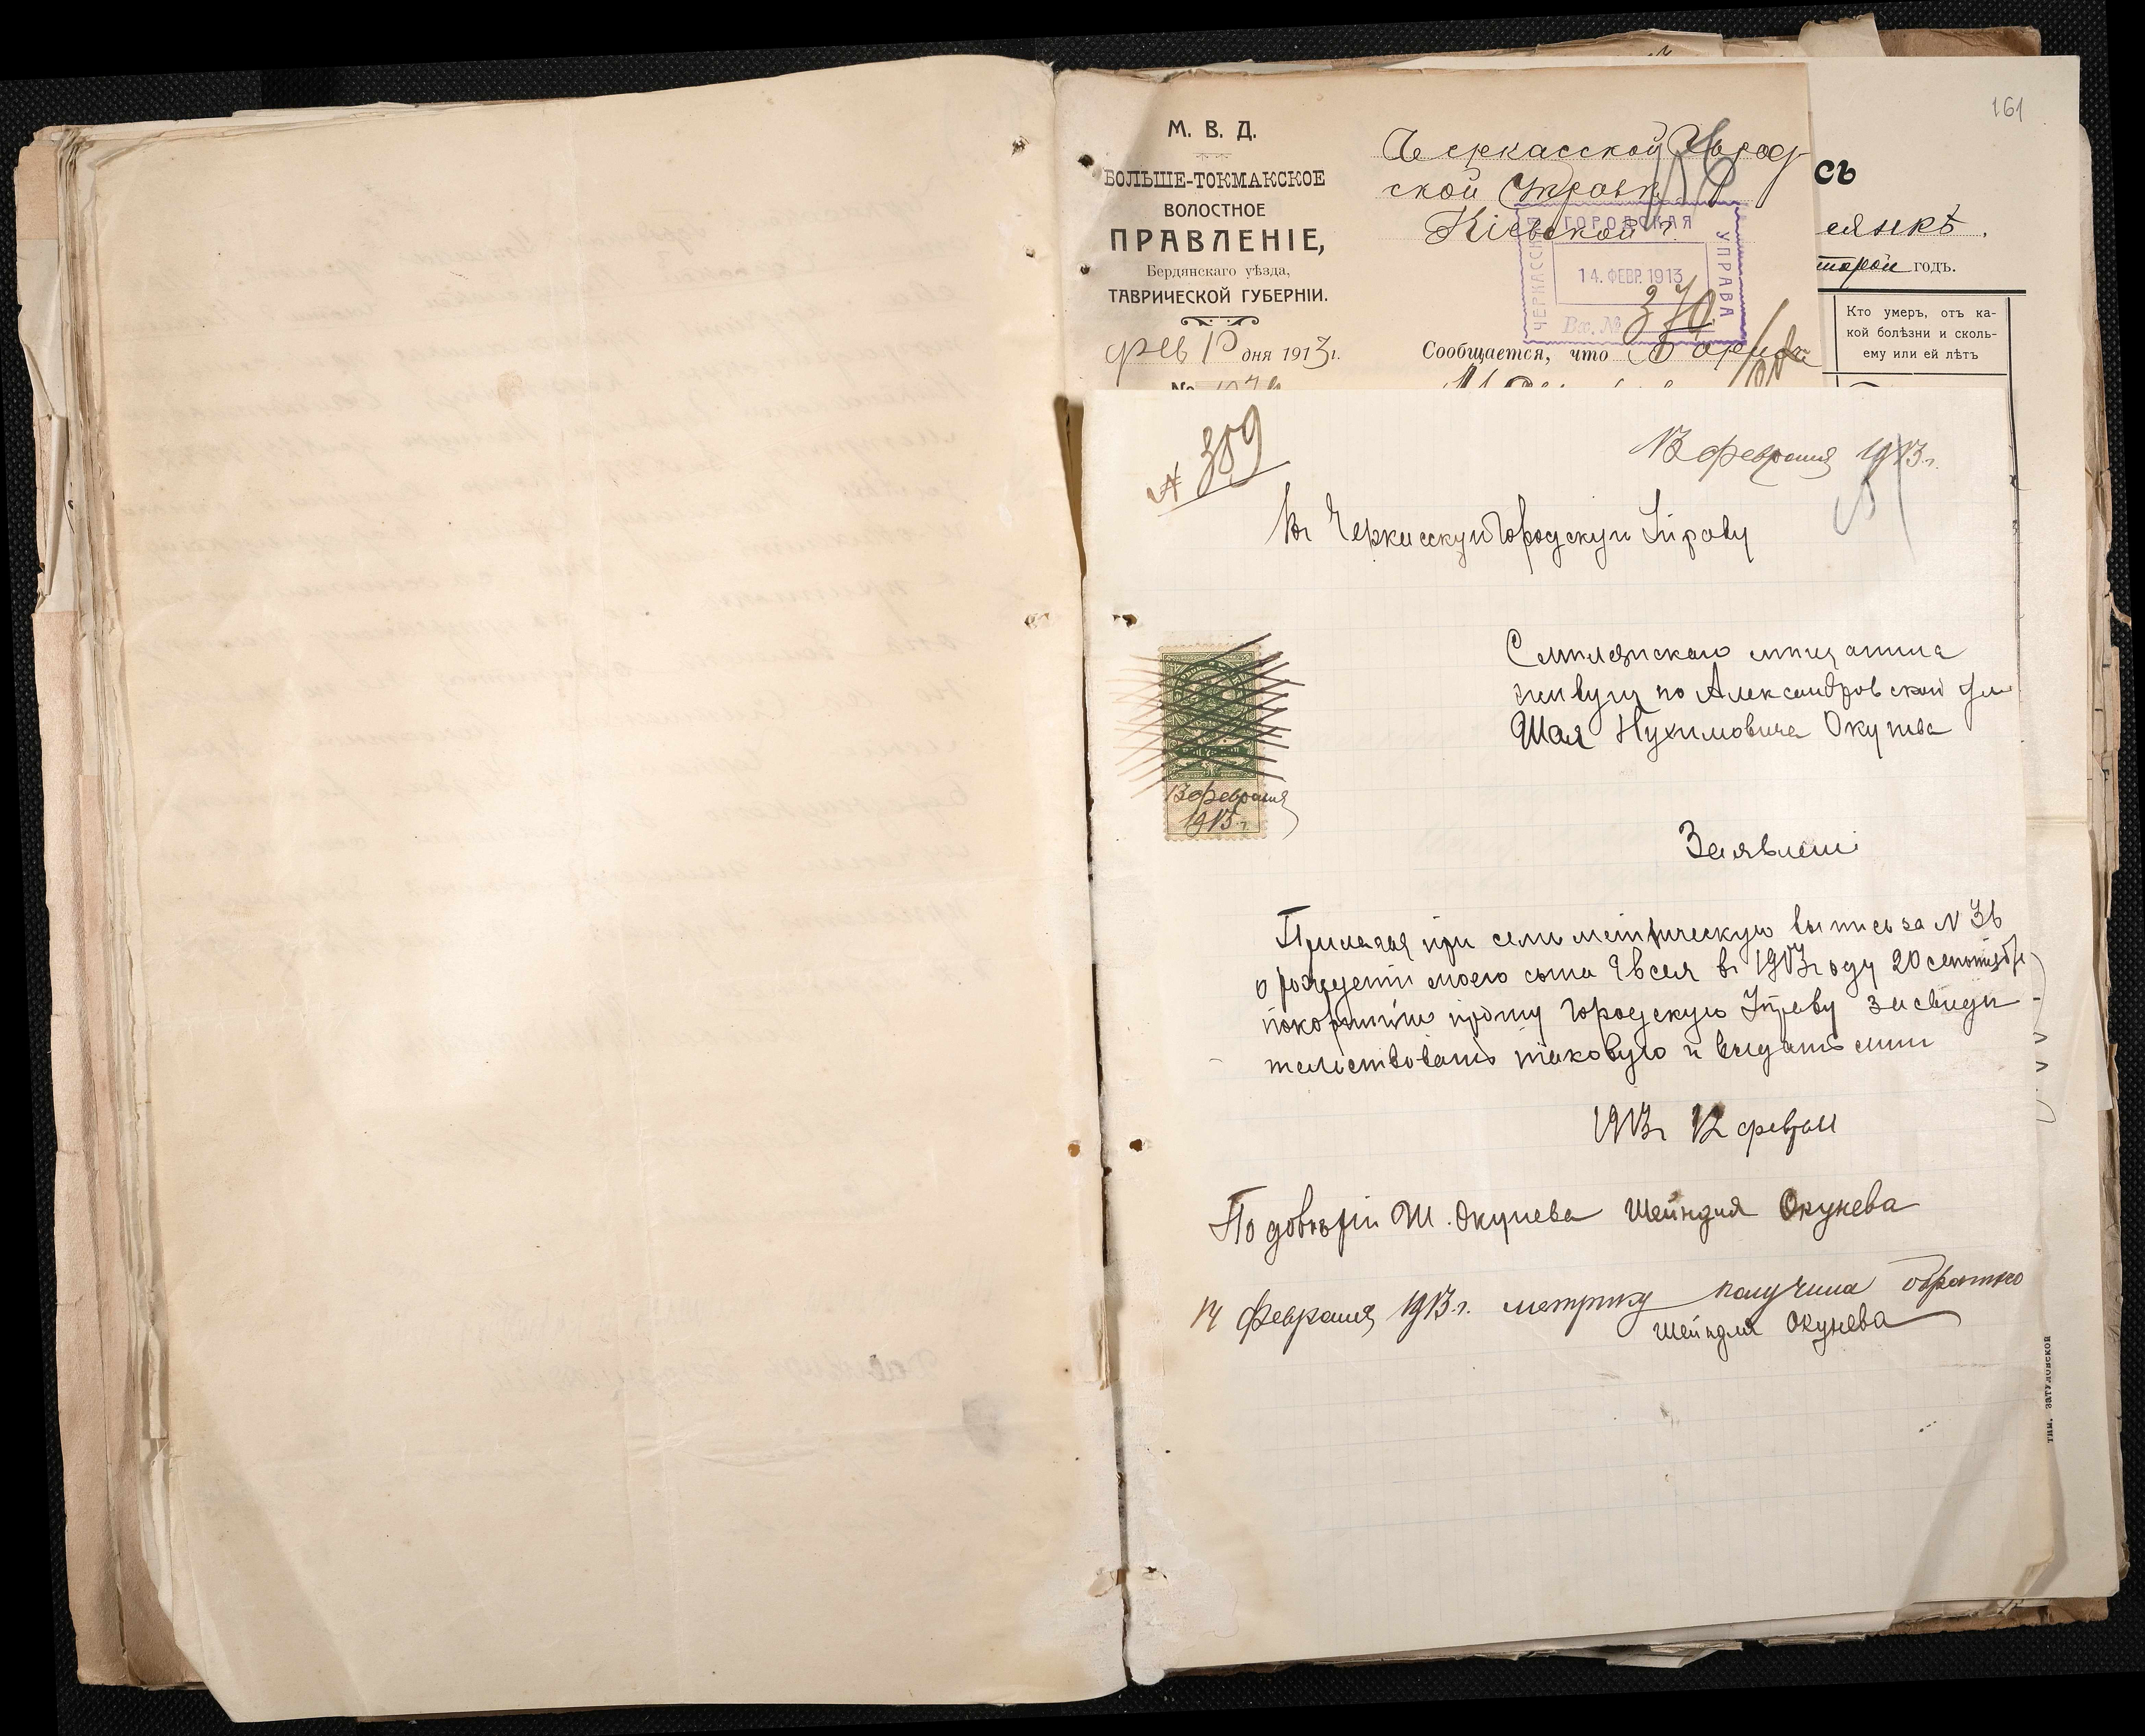 161
М. В. Д.
БОЛЬШЕ-ТОКМАКСКОЕ
ВОЛОСТНОЕ
ПРАВЛЕНІЕ,
Бердянскаго уѣзда,
ТАВРИЧЕСКОЙ ГУБЕРНІИ.
фев 13 дня 1913 г.
№
Черкасской Город-
ской Управѣ
Кіевской г.
ЧЕРКАССКАЯ ГОРОДСКАЯ УПРАВА
14. ФЕВР. 1913
Вх. № 370
Сообщается, что
сь
сянкѣ.
второй годъ.
Кто умеръ, отъ ка-
кой болѣзни и сколь-
ему или ей лѣтъ
№ 389
13 февраля 1913 г.
Въ Черкасскую Городскую Управу
Смилянскаго мѣщанина
живущ по Александровской ул
Шая Нухимовича Окунева
13 февраля
1913 г.
Заявлені
Прилагая при семъ метрическую выпись за N 36
о рождени моего сына Евсея въ 1903 году 20 сентября
покорнѣйше прошу Городскую Управу засвиди-
тельствовать таковую и выдать мнѣ
1913 г 12 феврал
По довѣрію Ш. Окунева Шейндля Окунева
14 Февраля 1913 г. метрику получила обратно
Шейндля Окунева
тип. ЗАТУЛОВСКОЙ